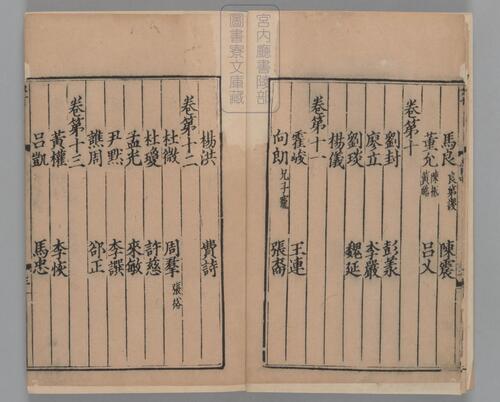 宮内廳書陵部
圖書寮文庫藏
馬良 良弟謖 陳震
董允 陳祗 黃皓 呂乂
卷第十
劉封 彭羕
廖立 李嚴
劉琰 魏延
楊儀
卷第十一
霍峻 王連
向朗 兄子寵 張裔
楊洪 費詩
卷第十二
杜微 周羣 張裕
杜瓊 許慈
孟光 來敏
尹默 李譔
譙周 郤正
卷第十三
黃權 李恢
呂凱 馬忠